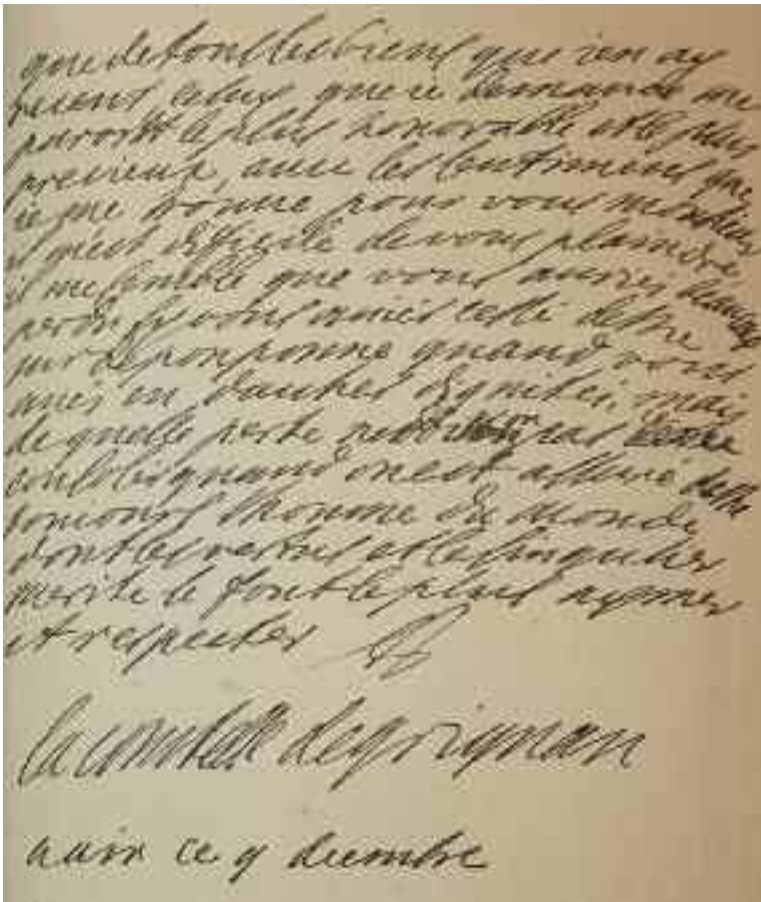 que de tous les biens que ien ay
receus celuy que ie demande me
paroist le plus honorable et le plus
precieux, avec les sentimens que
ie me donne pour vous monsieur
il m'est difficile de vous plaindre
il me semble que vous auries
perdu sy vous avies cessé destre
mr de ponponne quand vous
aves eu dautres dignites, mais
de quelle perte ne doit on pas estre
consolé quand on est assuré destre
tousiours l'homme du monde
dont les vertus et le singulier
merite se font le plus aymer
et respecter
la comtesse de grignan
a aix ce 9 decembre